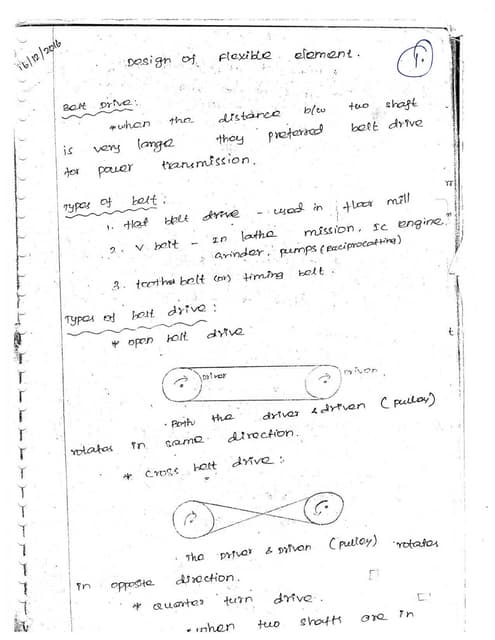 16/12/2016
1.
Design of Flexible element.
Belt Drive:
*when the distance b/w two shaft
is very large they preferred belt drive
for power transmission.
Types of belt:
1. flat belt drive - used in floor mill
2. V belt - In lathe mission, IC engine,
Grinder, pumps (Reciprocatting)
3. toothed belt (or) timing belt.
Types of belt drive:
* open belt drive
Driver
Driven
Both the driver & driven (pulley)
rotates in same direction.
* cross belt drive:
The Driver & Driven (pulley) rotates
in opposite direction.
* quarter turn drive.
• when two shafts are in